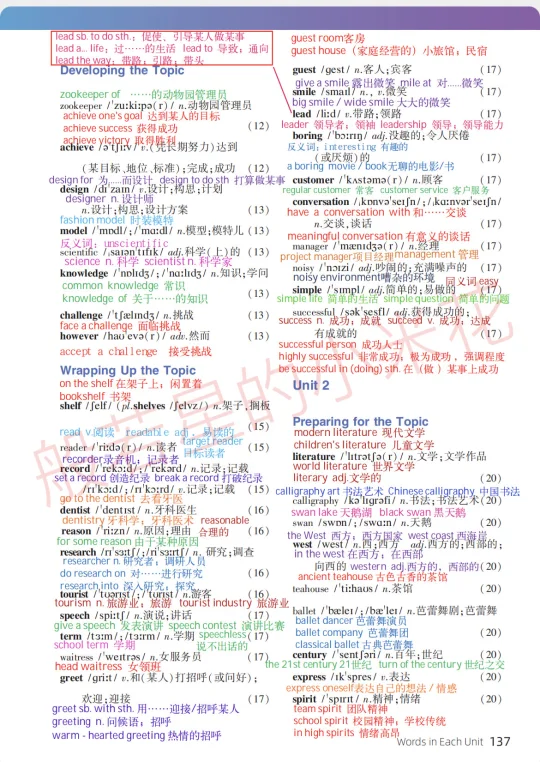 lead sb. to do sth.：促使、引导某人做某事
lead a... life：过……的生活 lead to 导致；通向
lead the way：带路；引路；带头
Developing the Topic
zookeeper of ……的动物园管理员
zookeeper /ˈzuːkiːpə(r)/ n.动物园管理员
achieve one's goal 达到某人的目标
achieve success 获得成功 (12)
achieve victory 取得胜利
achieve /əˈtʃiːv/ v.(凭长期努力)达到
(某目标、地位、标准)；完成；成功 (12)
design for 为……而设计 design to do sth 打算做某事
design /dɪˈzaɪn/ v.设计；构思；计划
designer n.设计师
n.设计；构思；设计方案 (13)
fashion model 时装模特
model /ˈmɒdl/；/ˈmɑːdl/ n.模型；模特儿 (13)
反义词：unscientific
scientific /ˌsaɪənˈtɪfɪk/ adj.科学(上)的 (13)
science n.科学 scientist n.科学家
knowledge /ˈnɒlɪdʒ/；/ˈnɑːlɪdʒ/ n.知识；学问
common knowledge 常识
knowledge of 关于……的知识 (13)
challenge /ˈtʃælɪndʒ/ n.挑战 (13)
face a challenge 面临挑战
however /haʊˈevə(r)/ adv.然而 (13)
accept a challenge 接受挑战
Wrapping Up the Topic
on the shelf 在架子上；闲置着
bookshelf 书架
shelf /ʃelf/ (pl.shelves /ʃelvz/) n.架子，搁板
(15)
read v.阅读 readable adj. 易读的
target reader
reader /ˈriːdə(r)/ n.读者 (15)
目标读者
recorder录音机；记录者
record /ˈrekɔːd/；/ˈrekərd/ n.记录；记载
set a record 创造纪录 break a record 打破纪录
/rɪˈkɔːd/；/rɪˈkɔːrd/ v.记录；记载 (15)
go to the dentist 去看牙医
dentist /ˈdentɪst/ n.牙科医生 (16)
dentistry 牙科学；牙科医术 reasonable
reason /ˈriːzn/ n.原因；理由 合理的 (16)
for some reason 由于某种原因
research /rɪˈsɜːtʃ/；/rɪˈsɜːrtʃ/ n.研究；调查
researcher n.研究者；调研人员
do research on 对……进行研究 (16)
research into 深入研究；探究
tourist /ˈtʊərɪst/；/ˈtʊrɪst/ n.游客 (16)
tourism n.旅游业；旅游 tourist industry 旅游业
speech /spiːtʃ/ n.演说；讲话 (17)
give a speech 发表演讲 speech contest 演讲比赛
term /tɜːm/；/tɜːrm/ n.学期 speechless (17)
school term 学期 说不出话的
waitress /ˈweɪtrəs/ n.女服务员 (17)
head waitress 女领班
greet /griːt/ v.和(某人)打招呼(或问好)；
欢迎；迎接 (17)
greet sb. with sth. 用……迎接/招呼某人
greeting n.问候语；招呼
warm - hearted greeting 热情的招呼
guest room客房
guest house（家庭经营的）小旅馆；民宿
guest /gest/ n.客人；宾客 (17)
give a smile 露出微笑 smile at 对……微笑
smile /smaɪl/ n., v.微笑 (17)
big smile / wide smile 大大的微笑
lead /liːd/ v.带路；领路 (17)
leader 领导者；领袖 leadership 领导；领导能力
boring /ˈbɔːrɪŋ/ adj.没趣的；令人厌倦
反义词：interesting 有趣的
(或厌烦)的 (17)
a boring movie / book无聊的电影/书
customer /ˈkʌstəmə(r)/ n.顾客 (17)
regular customer 常客 customer service 客户服务
conversation /ˌkɒnvəˈseɪʃn/；/ˌkɑːnvərˈseɪʃn/
have a conversation with 和……交谈
n.交谈，谈话 (17)
meaningful conversation 有意义的谈话
manager /ˈmænɪdʒə(r)/ n.经理 (17)
project manager项目经理 management 管理
noisy /ˈnɔɪzi/ adj.吵闹的；充满噪声的 (17)
noisy environment嘈杂的环境 同义词 easy
simple /ˈsɪmpl/ adj.简单的；易做的 (17)
simple life 简单的生活 simple question 简单的问题
successful /səkˈsesfl/ adj.获得成功的；
success n. 成功；成就 succeed v. 成功；达成
有成就的 (17)
successful person 成功人士
highly successful 非常成功；极为成功，强调程度
be successful in (doing) sth. 在（做）某事上成功
Unit 2
Preparing for the Topic
modern literature 现代文学
children's literature 儿童文学
literature /ˈlɪtrətʃə(r)/ n.文学；文学作品
world literature 世界文学
literary adj.文学的 (20)
calligraphy art 书法艺术 Chinese calligraphy 中国书法
calligraphy /kəˈlɪgrəfi/ n.书法；书法艺术 (20)
swan lake 天鹅湖 black swan 黑天鹅
swan /swɒn/；/swɑːn/ n.天鹅 (20)
the West 西方；西方国家 west coast 西海岸
west /west/ n.西；西方 adj.西方的；西部的；
in the west 在西方；在西部
向西的 western adj.西方的，西部的 (20)
ancient teahouse 古色古香的茶馆
teahouse /ˈtiːhaʊs/ n.茶馆 (20)
ballet /ˈbæleɪ/；/bæˈleɪ/ n.芭蕾舞剧；芭蕾舞
ballet dancer 芭蕾舞演员
ballet company 芭蕾舞团 (20)
classical ballet 古典芭蕾舞
century /ˈsentʃəri/ n.百年；世纪 (20)
the 21st century 21世纪 turn of the century 世纪之交
express /ɪkˈspres/ v.表达 (20)
express oneself表达自己的想法 / 情感
spirit /ˈspɪrɪt/ n.精神；情绪 (20)
team spirit 团队精神
school spirit 校园精神；学校传统
in high spirits 情绪高昂
Words in Each Unit 137